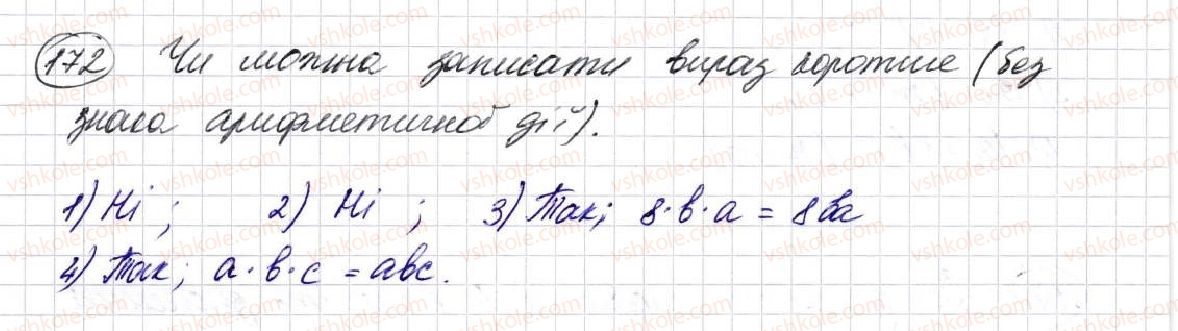 172 Чи можна записати вираз коротше (без
знака арифметичної дії).
1) Ні; 2) Ні; 3) Так; 8·в·а = 8ва
4) Так; а·в·с = авс.